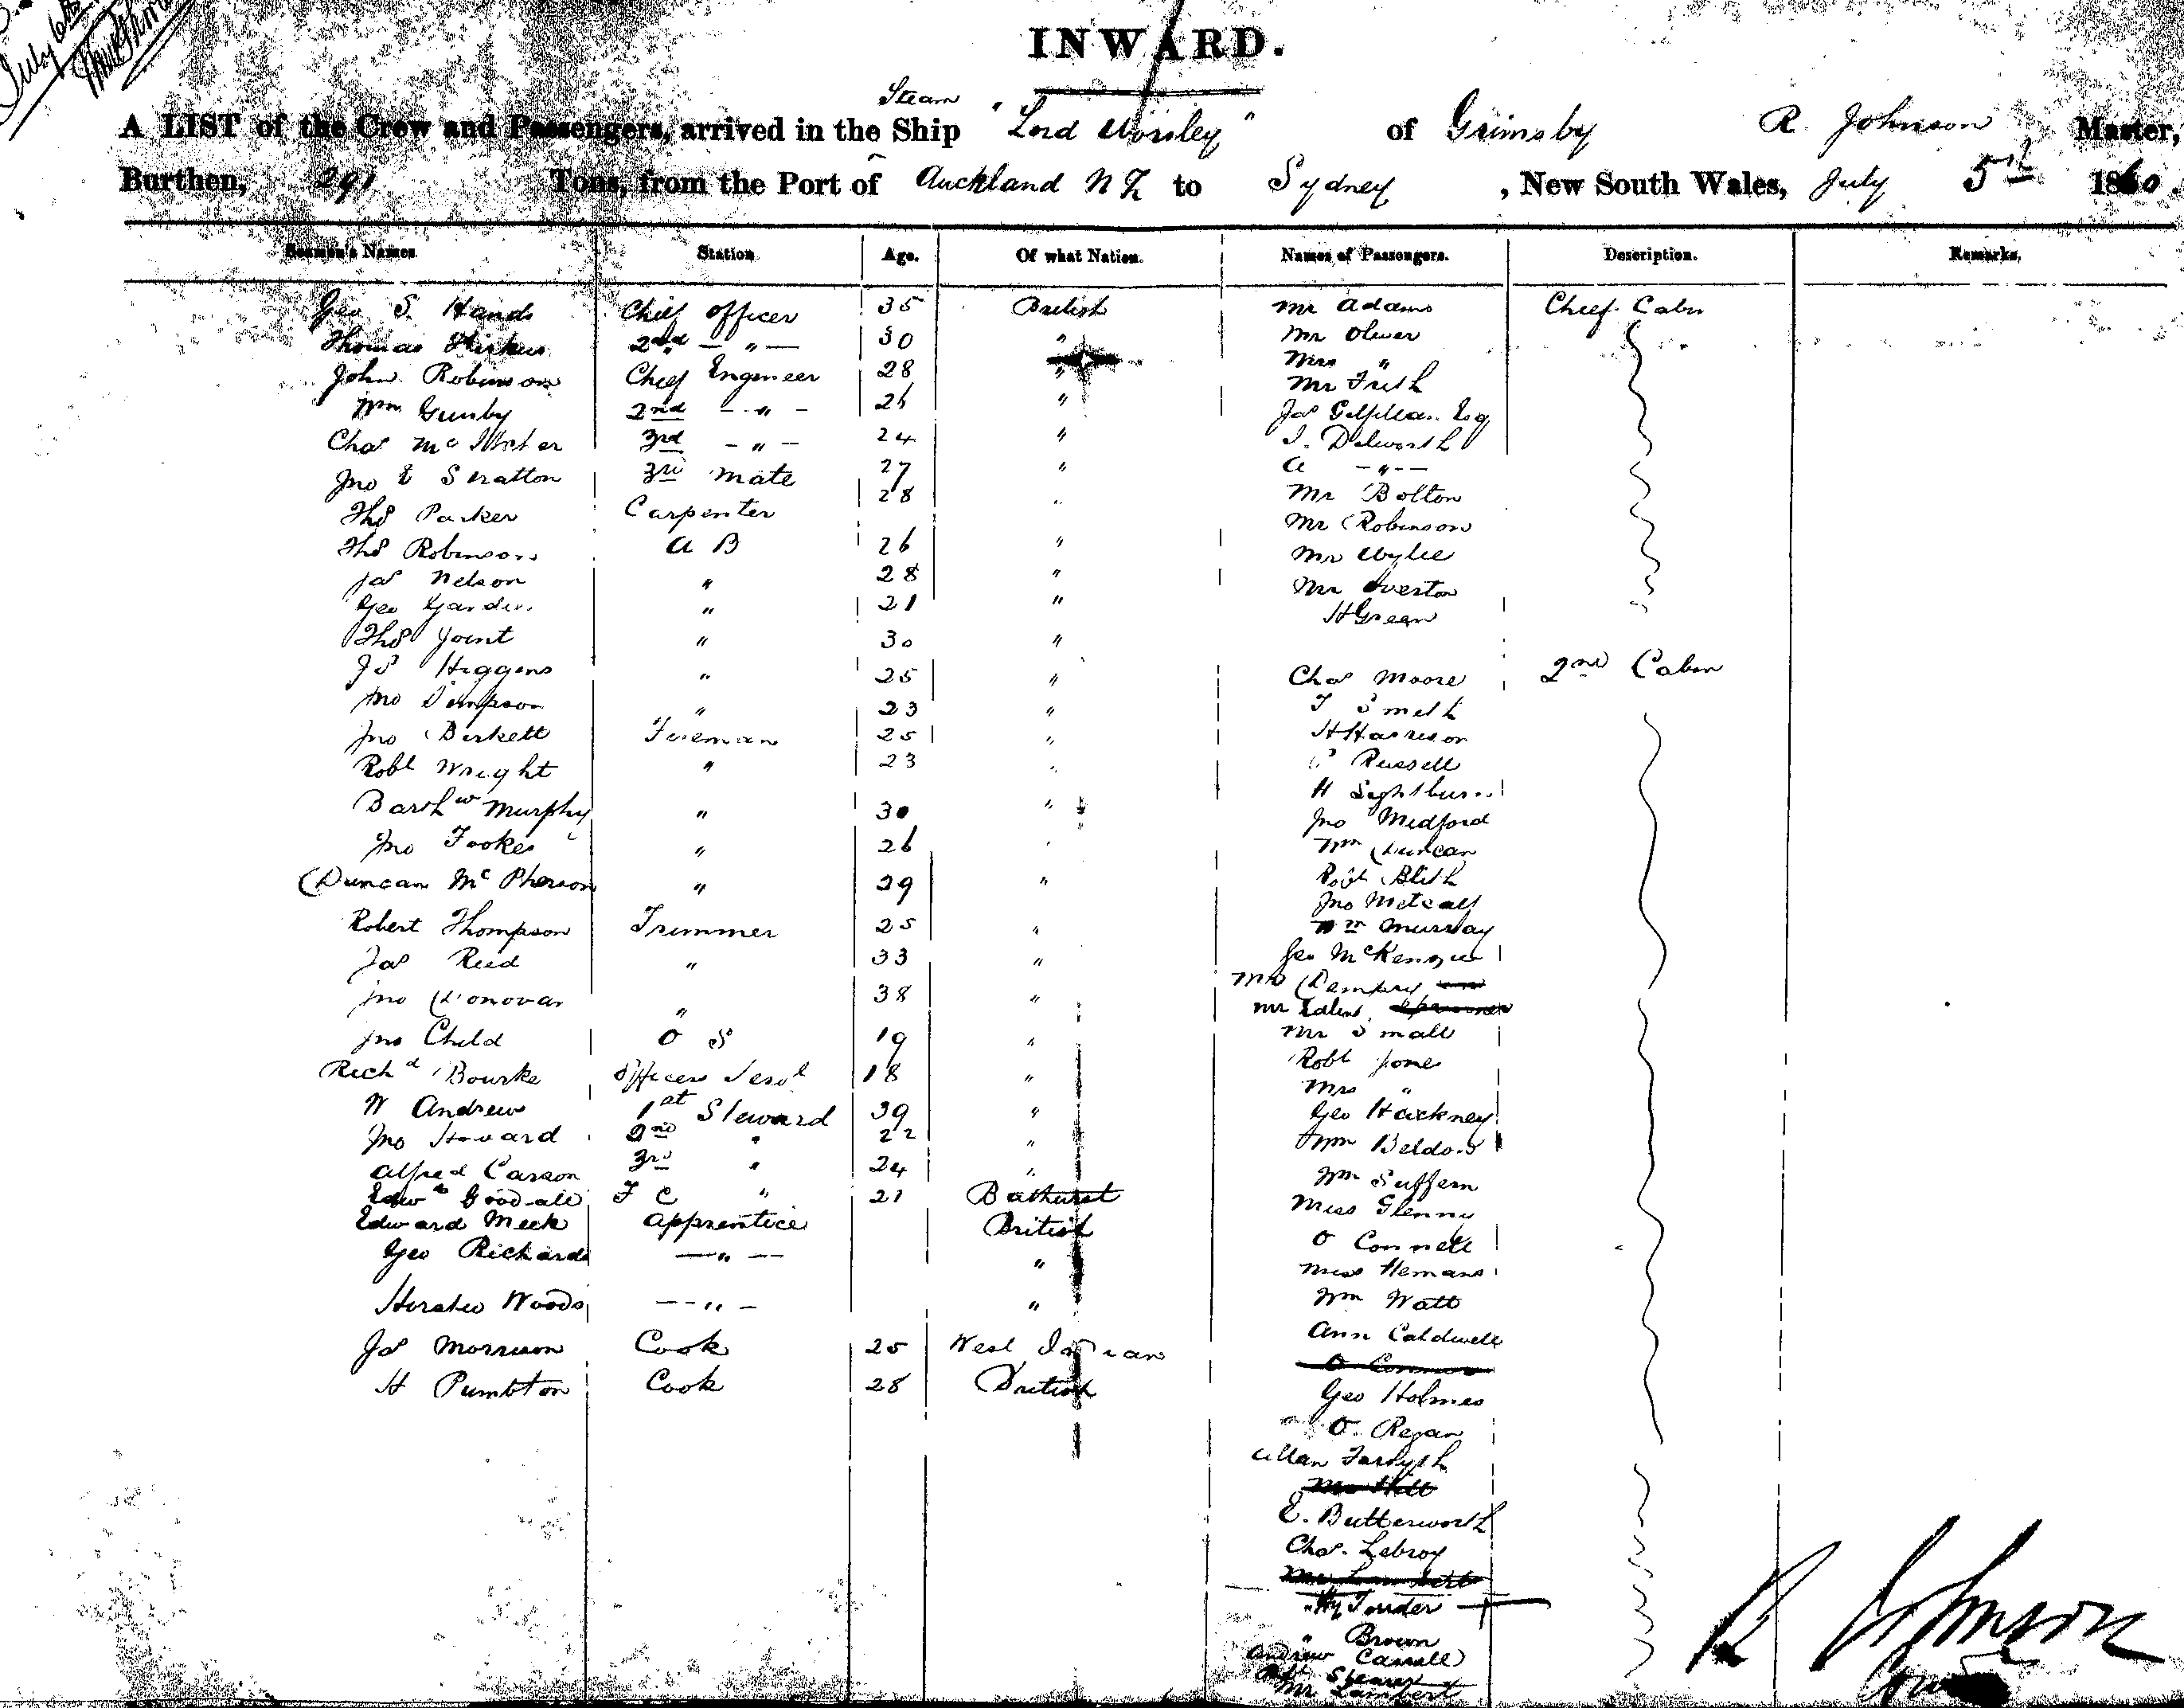 July 6th
INWARD.
Steam
A LIST of the Crew and Passengers, arrived in the Ship "Lord Worsley" of Grimsby R. Johnson Master,
Burthen, 291 Tons, from the Port of Auckland N Z to Sydney, New South Wales, July 5th 1860.
Seamen's Names Station Age. Of what Nation. Names of Passengers. Description. Remarks.
Geo S. Hands Chief officer 35 British Mr Adams Chief Cabin
Thomas 2nd — " — 30 " Mr Oliver
Mrs "
John Robinson Chief Engineer 28 " Mr Frith
Wm Gunby 2nd - " - 26 " Jas Esq
Chas Mc 3rd - " - 24 " J. Dilworth
Jno E Stratton 3rd Mate 27 " A - " -
Thos Parker Carpenter 28 " Mr Bolton
Mr Robinson
Thos Robinson A B 26 " Mr Wylie
Jas Nelson " 28 " Mr Overton
Geo " 21 " H Green
Thos Joint " 30 "
Js Higgins " 25 " Chas Moore 2nd Cabin
Jno Simpson " 23 " T Smith
Jno Birkett Fireman 25 " H Harrison
Robt Wright " 23 " Russell
H
Barthw Murphy " 30 " Jno Medford
Jno Fookes " 26 Wm Duncan
Duncan McPherson " 29 " Robt Blith
Jno Metcalf
Robert Thompson Trimmer 25 " Wm Murray
Jas Reed " 33 " Geo McKenzie
Mrs Dempsey
Jno Donovan " 38 " Mr
Jno Child O S 19 " Mr Small
Robt Jone
Richd Bourke Officers Servt 18 " Mrs "
W Andrew 1st Steward 39 " Geo Hackney
Jno Howard 2nd " 22 " Wm
Alfred Carson 3rd " 24 " Wm Suffern
Edwd Goodall F C " 21 Bathurst Miss Glenny
Edward Meek Apprentice British O Connell
Geo Richards — " — " Miss Hemans
Horatio Woods — " — " Wm Watt
Jas Morrison Cook 25 West Indian Ann Caldwell
O Connor
H Pumbton Cook 28 British Geo Holmes
O. Regan
Allan Forsyth
E. Butterworth
Chas. Lebroy
Hy
" Brown
Andrew
Robt
Mr Lambert
R Johnson